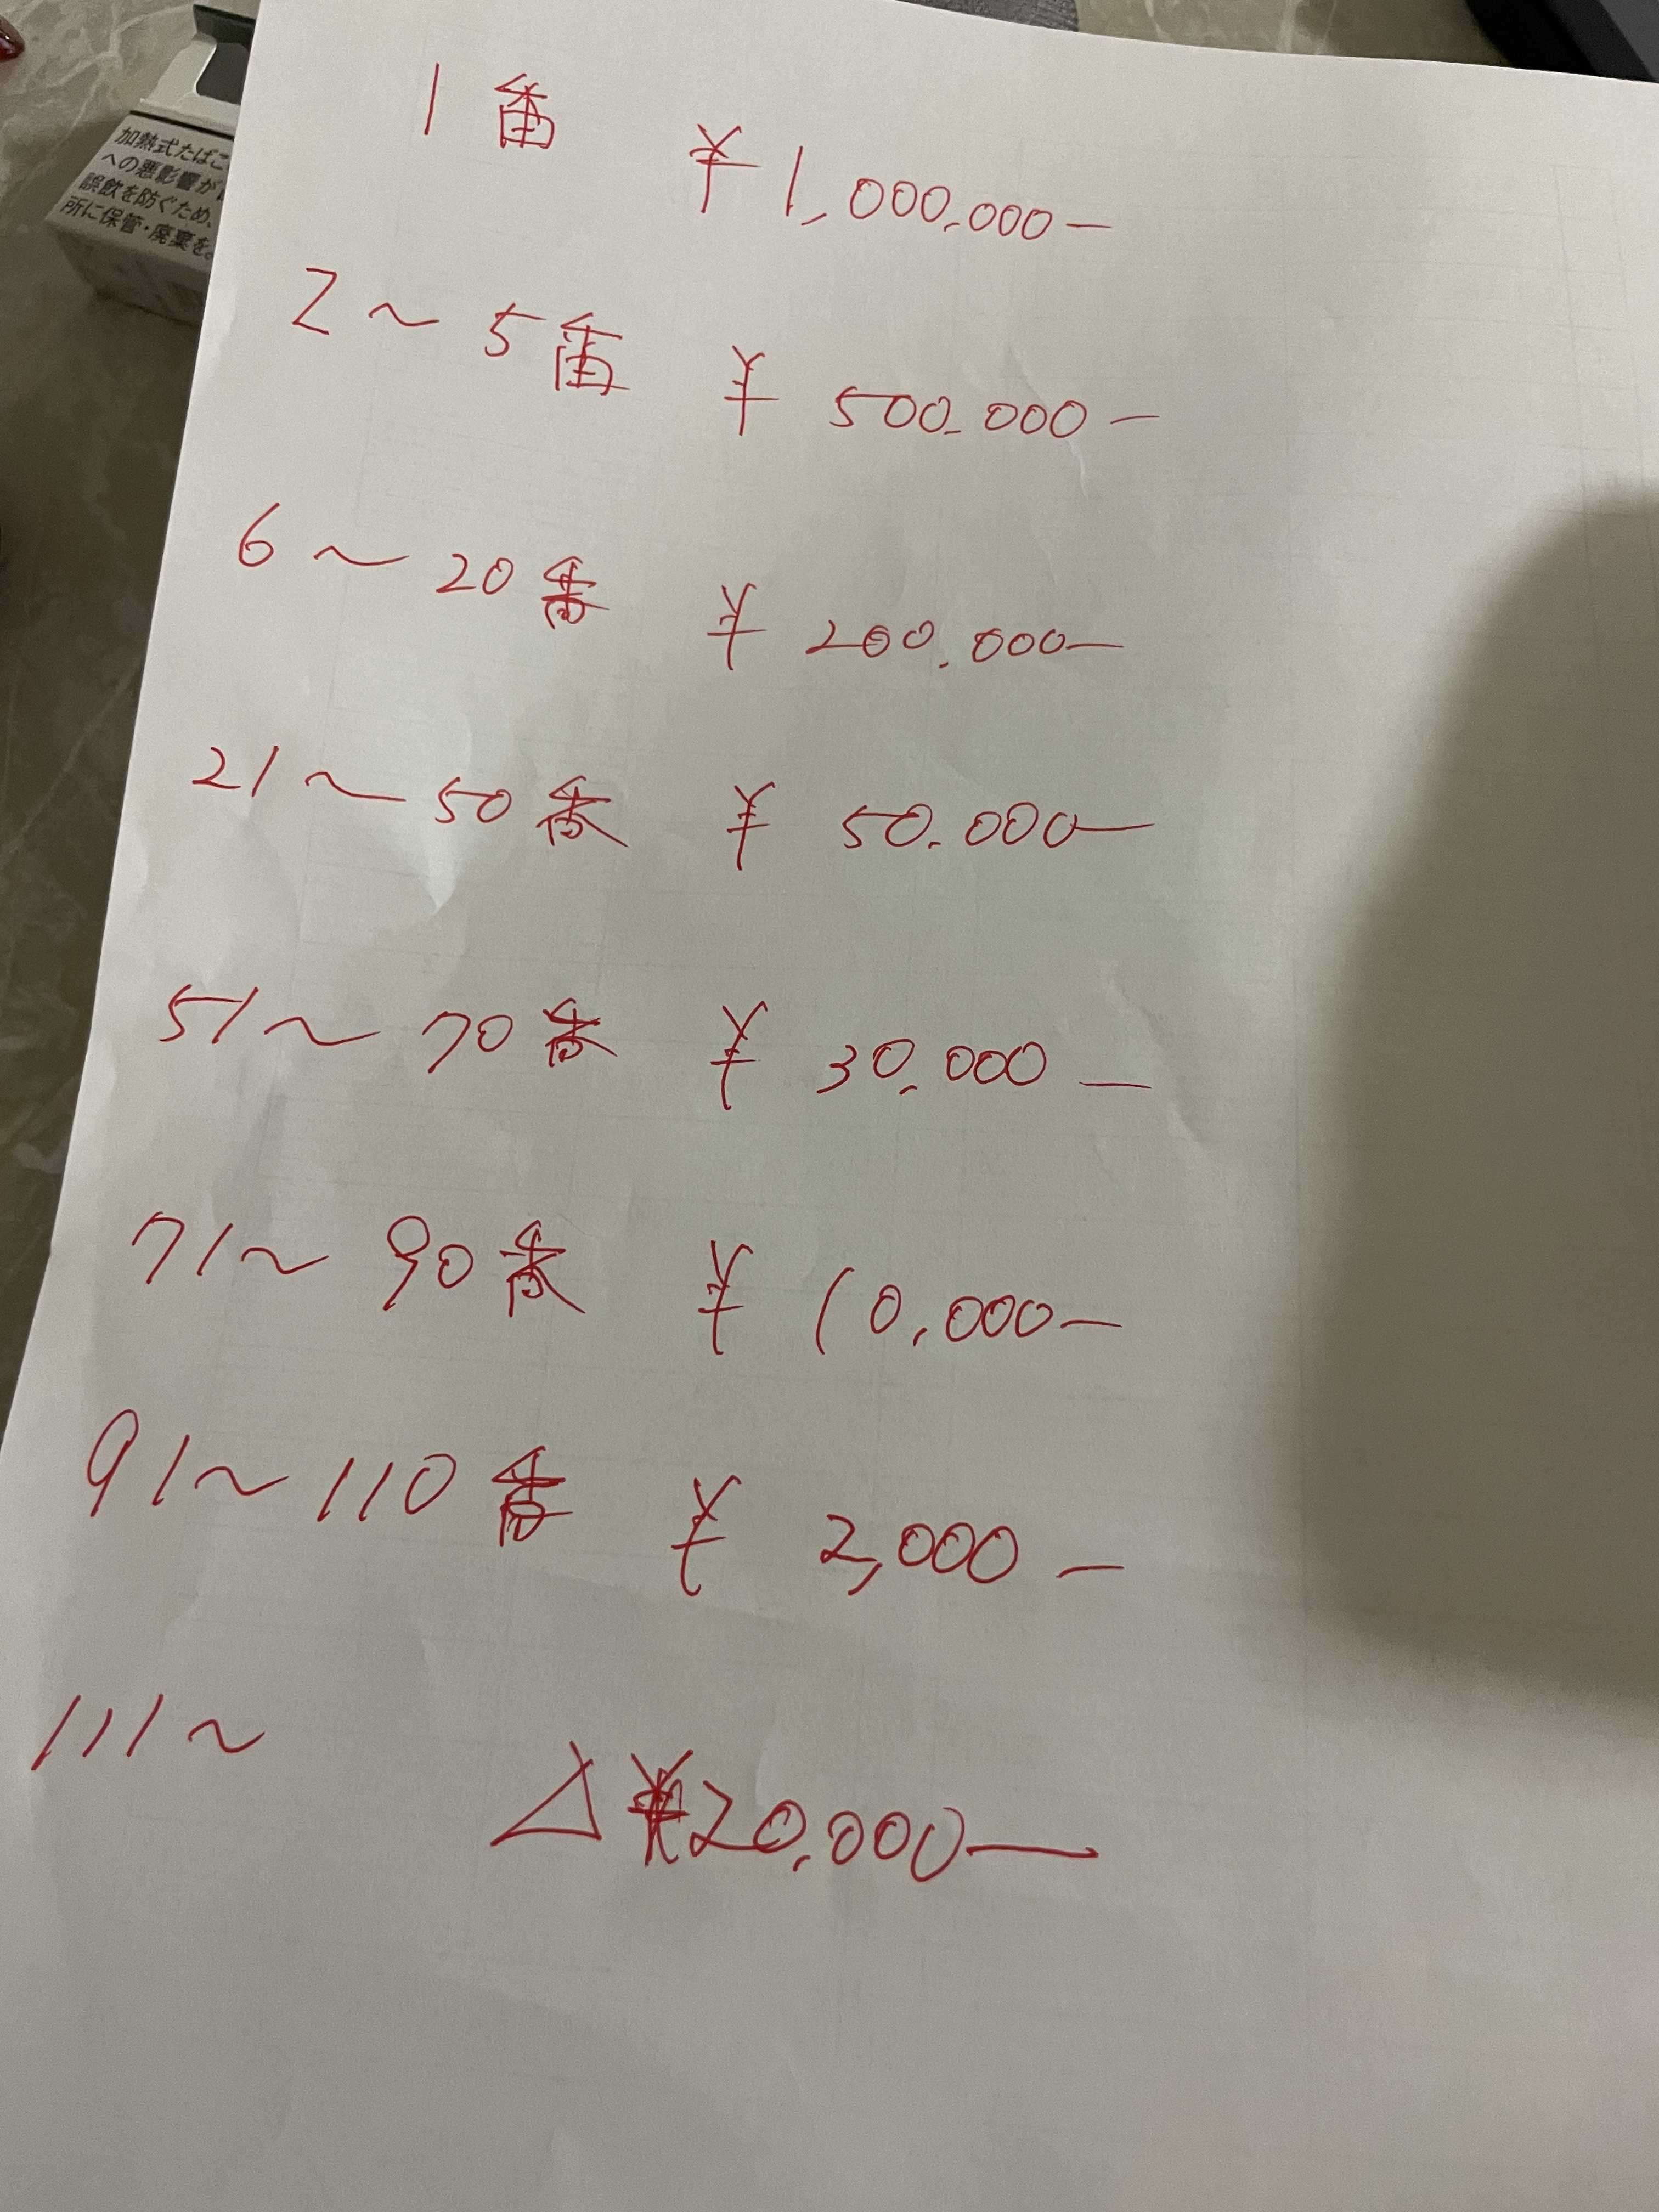 加熱式たばこ
への悪影響が
誤飲を防ぐため、
所に保管・廃棄を
1番 ¥1,000,000-
2~5番 ¥500,000-
6~20番 ¥200,000-
21~50番 ¥50,000-
51~70番 ¥30,000-
71~90番 ¥10,000-
91~110番 ¥2,000-
111~ △¥20,000-